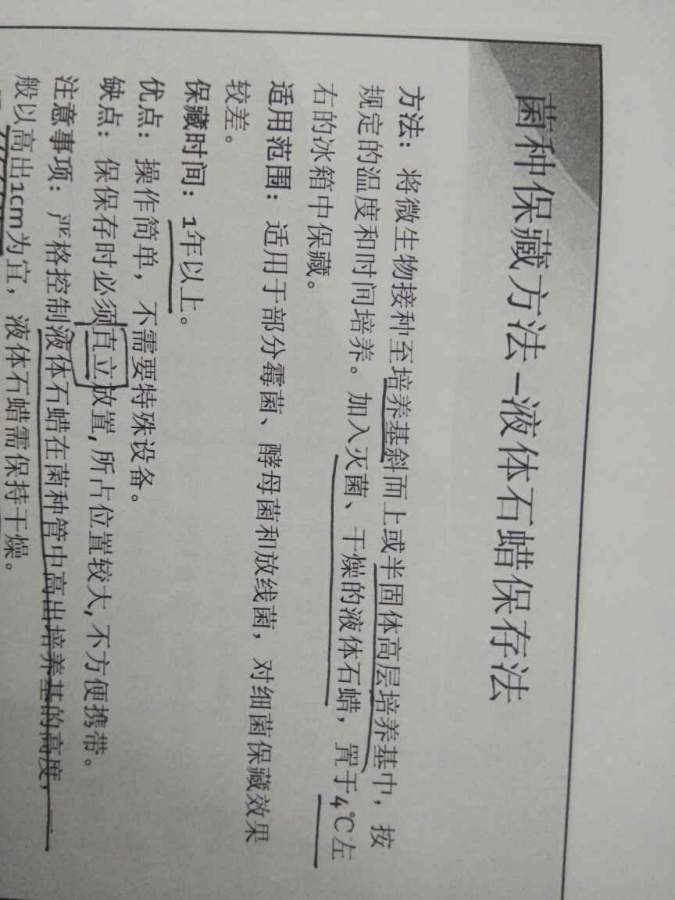 菌种保藏方法–液体石蜡保存法
方法：将微生物接种至培养基斜面上或半固体高层培养基中，按
规定的温度和时间培养。加入灭菌、干燥的液体石蜡，置于4℃左
右的冰箱中保藏。
适用范围：适用于部分霉菌、酵母菌和放线菌，对细菌保藏效果
较差。
保藏时间：1年以上。
优点：操作简单，不需要特殊设备。
缺点：保保存时必须直立放置,所占位置较大,不方便携带。
注意事项：严格控制液体石蜡在菌种管中高出培养基的高度，一
般以高出1cm为宜，液体石蜡需保持干燥。